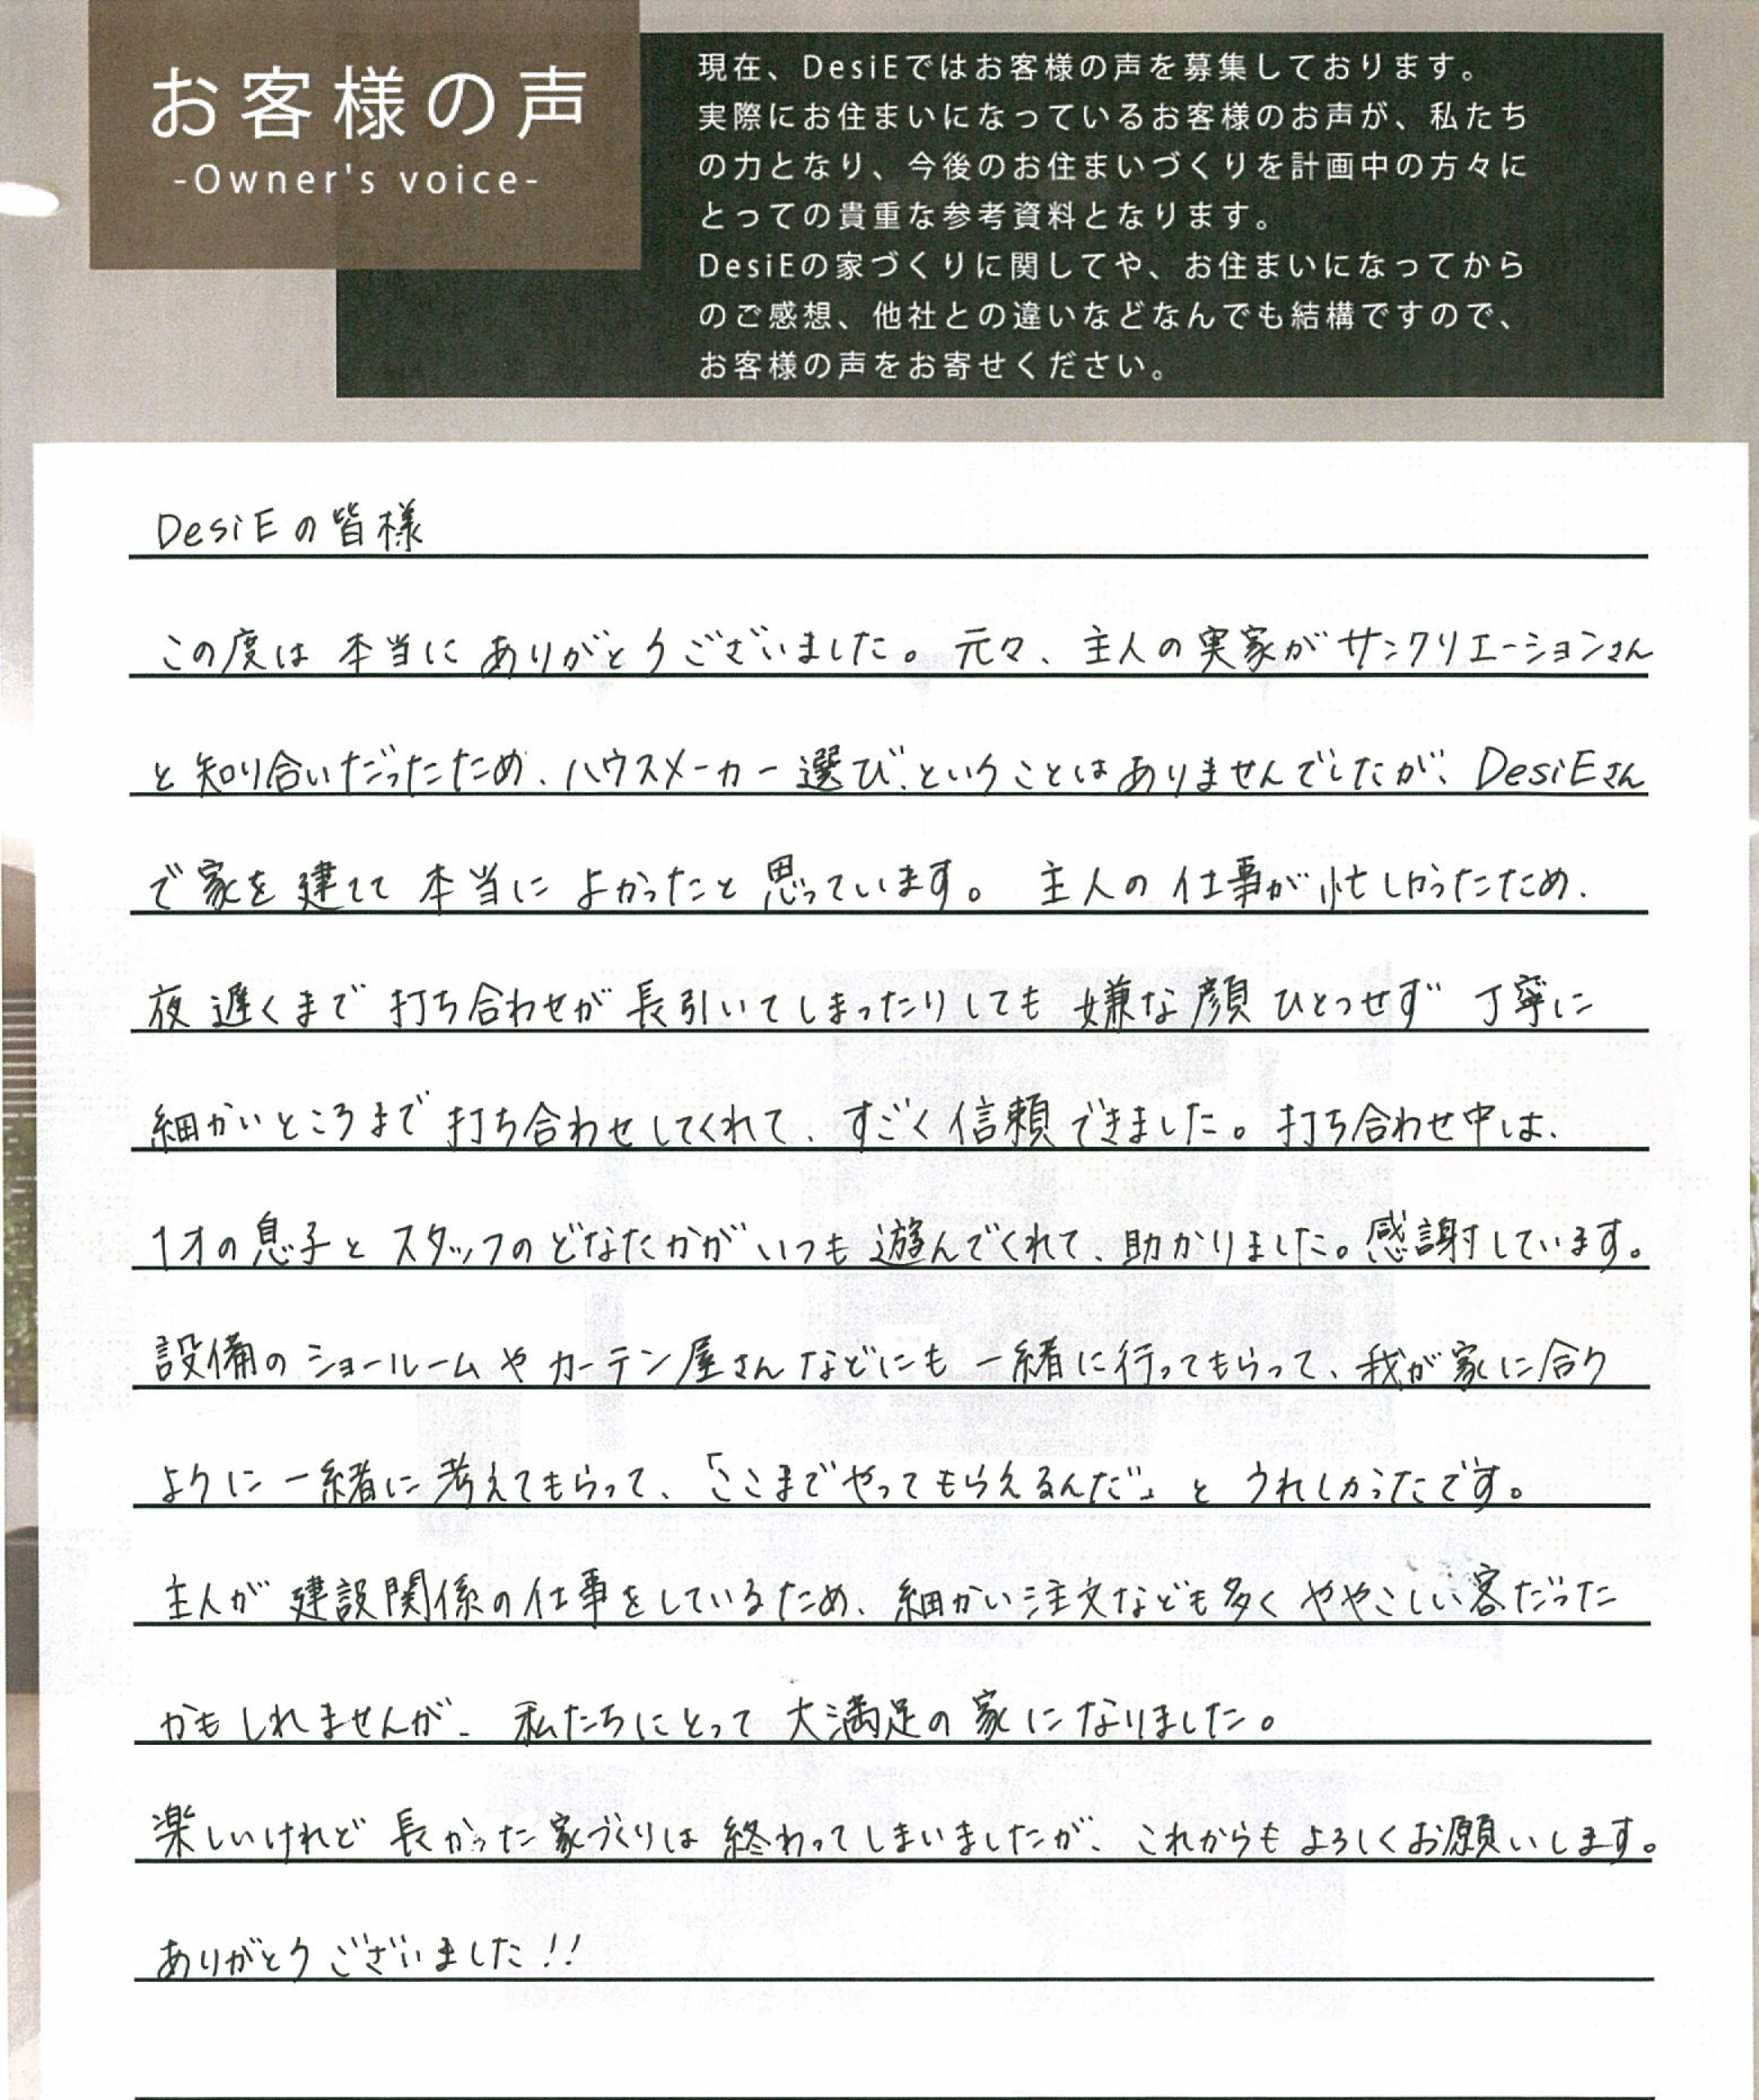 お客様の声
-Owner's voice-
現在、DesiEではお客様の声を募集しております。
実際にお住まいになっているお客様のお声が、私たち
の力となり、今後のお住まいづくりを計画中の方々に
とっての貴重な参考資料となります。
DesiEの家づくりに関してや、お住まいになってから
のご感想、他社との違いなどなんでも結構ですので、
お客様の声をお寄せください。
DesiEの皆様
この度は本当にありがとうございました。元々、主人の実家がサンクリエーションさん
と知り合いだったため、ハウスメーカー選び、ということはありませんでしたが、DesiEさん
で家を建てて本当によかったと思っています。主人の仕事が忙しかったため、
夜遅くまで打ち合わせが長引いてしまったりしても嫌な顔ひとつせず丁寧に
細かいところまで打ち合わせしてくれて、すごく信頼できました。打ち合わせ中は、
1才の息子とスタッフのどなたかがいつも遊んでくれて、助かりました。感謝しています。
設備のショールームやカーテン屋さんなどにも一緒に行ってもらって、我が家に合う
ように一緒に考えてもらって、「ここまでやってもらえるんだ」とうれしかったです。
主人が建設関係の仕事をしているため、細かい注文なども多くややこしい客だった
かもしれませんが、私たちにとって大満足の家になりました。
楽しいけれど長かった家づくりは終わってしまいましたが、これからもよろしくお願いします。
ありがとうございました!!